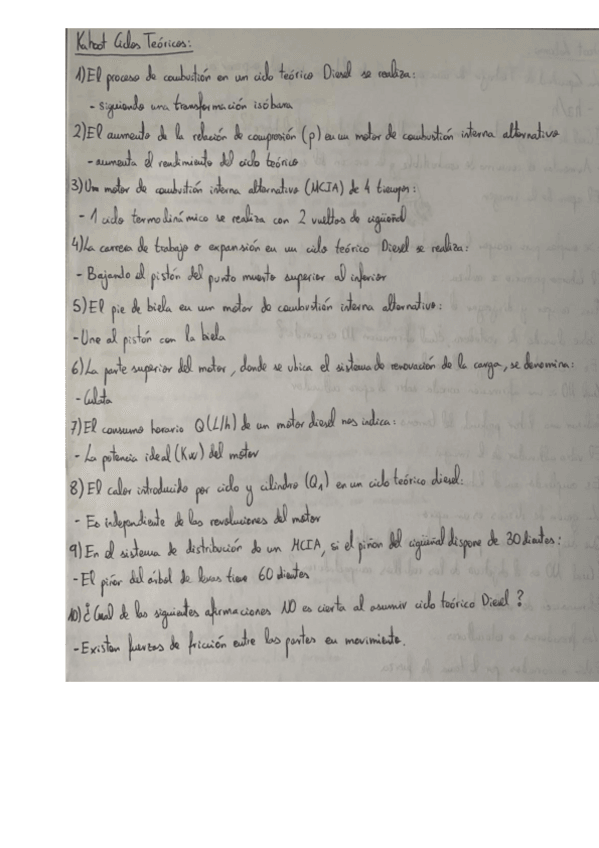 Kahoot Ciclos Teóricos:
1) El proceso de combustión en un ciclo teórico Diesel se realiza:
- siguiendo una transformación isóbara
2) El aumento de la relación de compresión (ρ) en un motor de combustión interna alternativo
- aumenta el rendimiento del ciclo teórico
3) Un motor de combustión interna alternativo (MCIA) de 4 tiempos:
- 1 ciclo termodinámico se realiza con 2 vueltas de cigüeñal
4) La carrera de trabajo o expansión en un ciclo teórico Diesel se realiza:
- Bajando el pistón del punto muerto superior al inferior
5) El pie de biela en un motor de combustión interna alternativo:
- Une al pistón con la biela
6) La parte superior del motor, donde se ubica el sistema de renovación de la carga, se denomina:
- Culata
7) El consumo horario Q (L/h) de un motor diesel nos indica:
- La potencia ideal (Kw) del motor
8) El calor introducido por ciclo y cilindro (Q1) en un ciclo teórico diesel:
- Es independiente de las revoluciones del motor
9) En el sistema de distribución de un MCIA, si el piñón del cigüeñal dispone de 30 dientes:
- El piñón del árbol de levas tiene 60 dientes
10) ¿Cual de las siguientes afirmaciones NO es cierta al asumir ciclo teórico Diesel?
- Existen fuerzas de fricción entre las partes en movimiento.